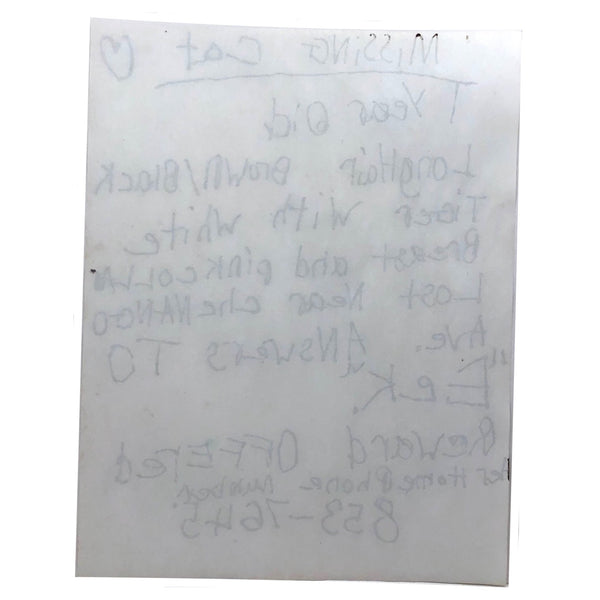 MiSSiNG Cat ♡
1 Year Old
LongHair Brown/Black
Tiger with white
Breast and pink COLLAR
Lost Near CheNANGO
Ave. ANSWERS TO
"Eek".
Reward OFFEred
Home Phone number
853-7645